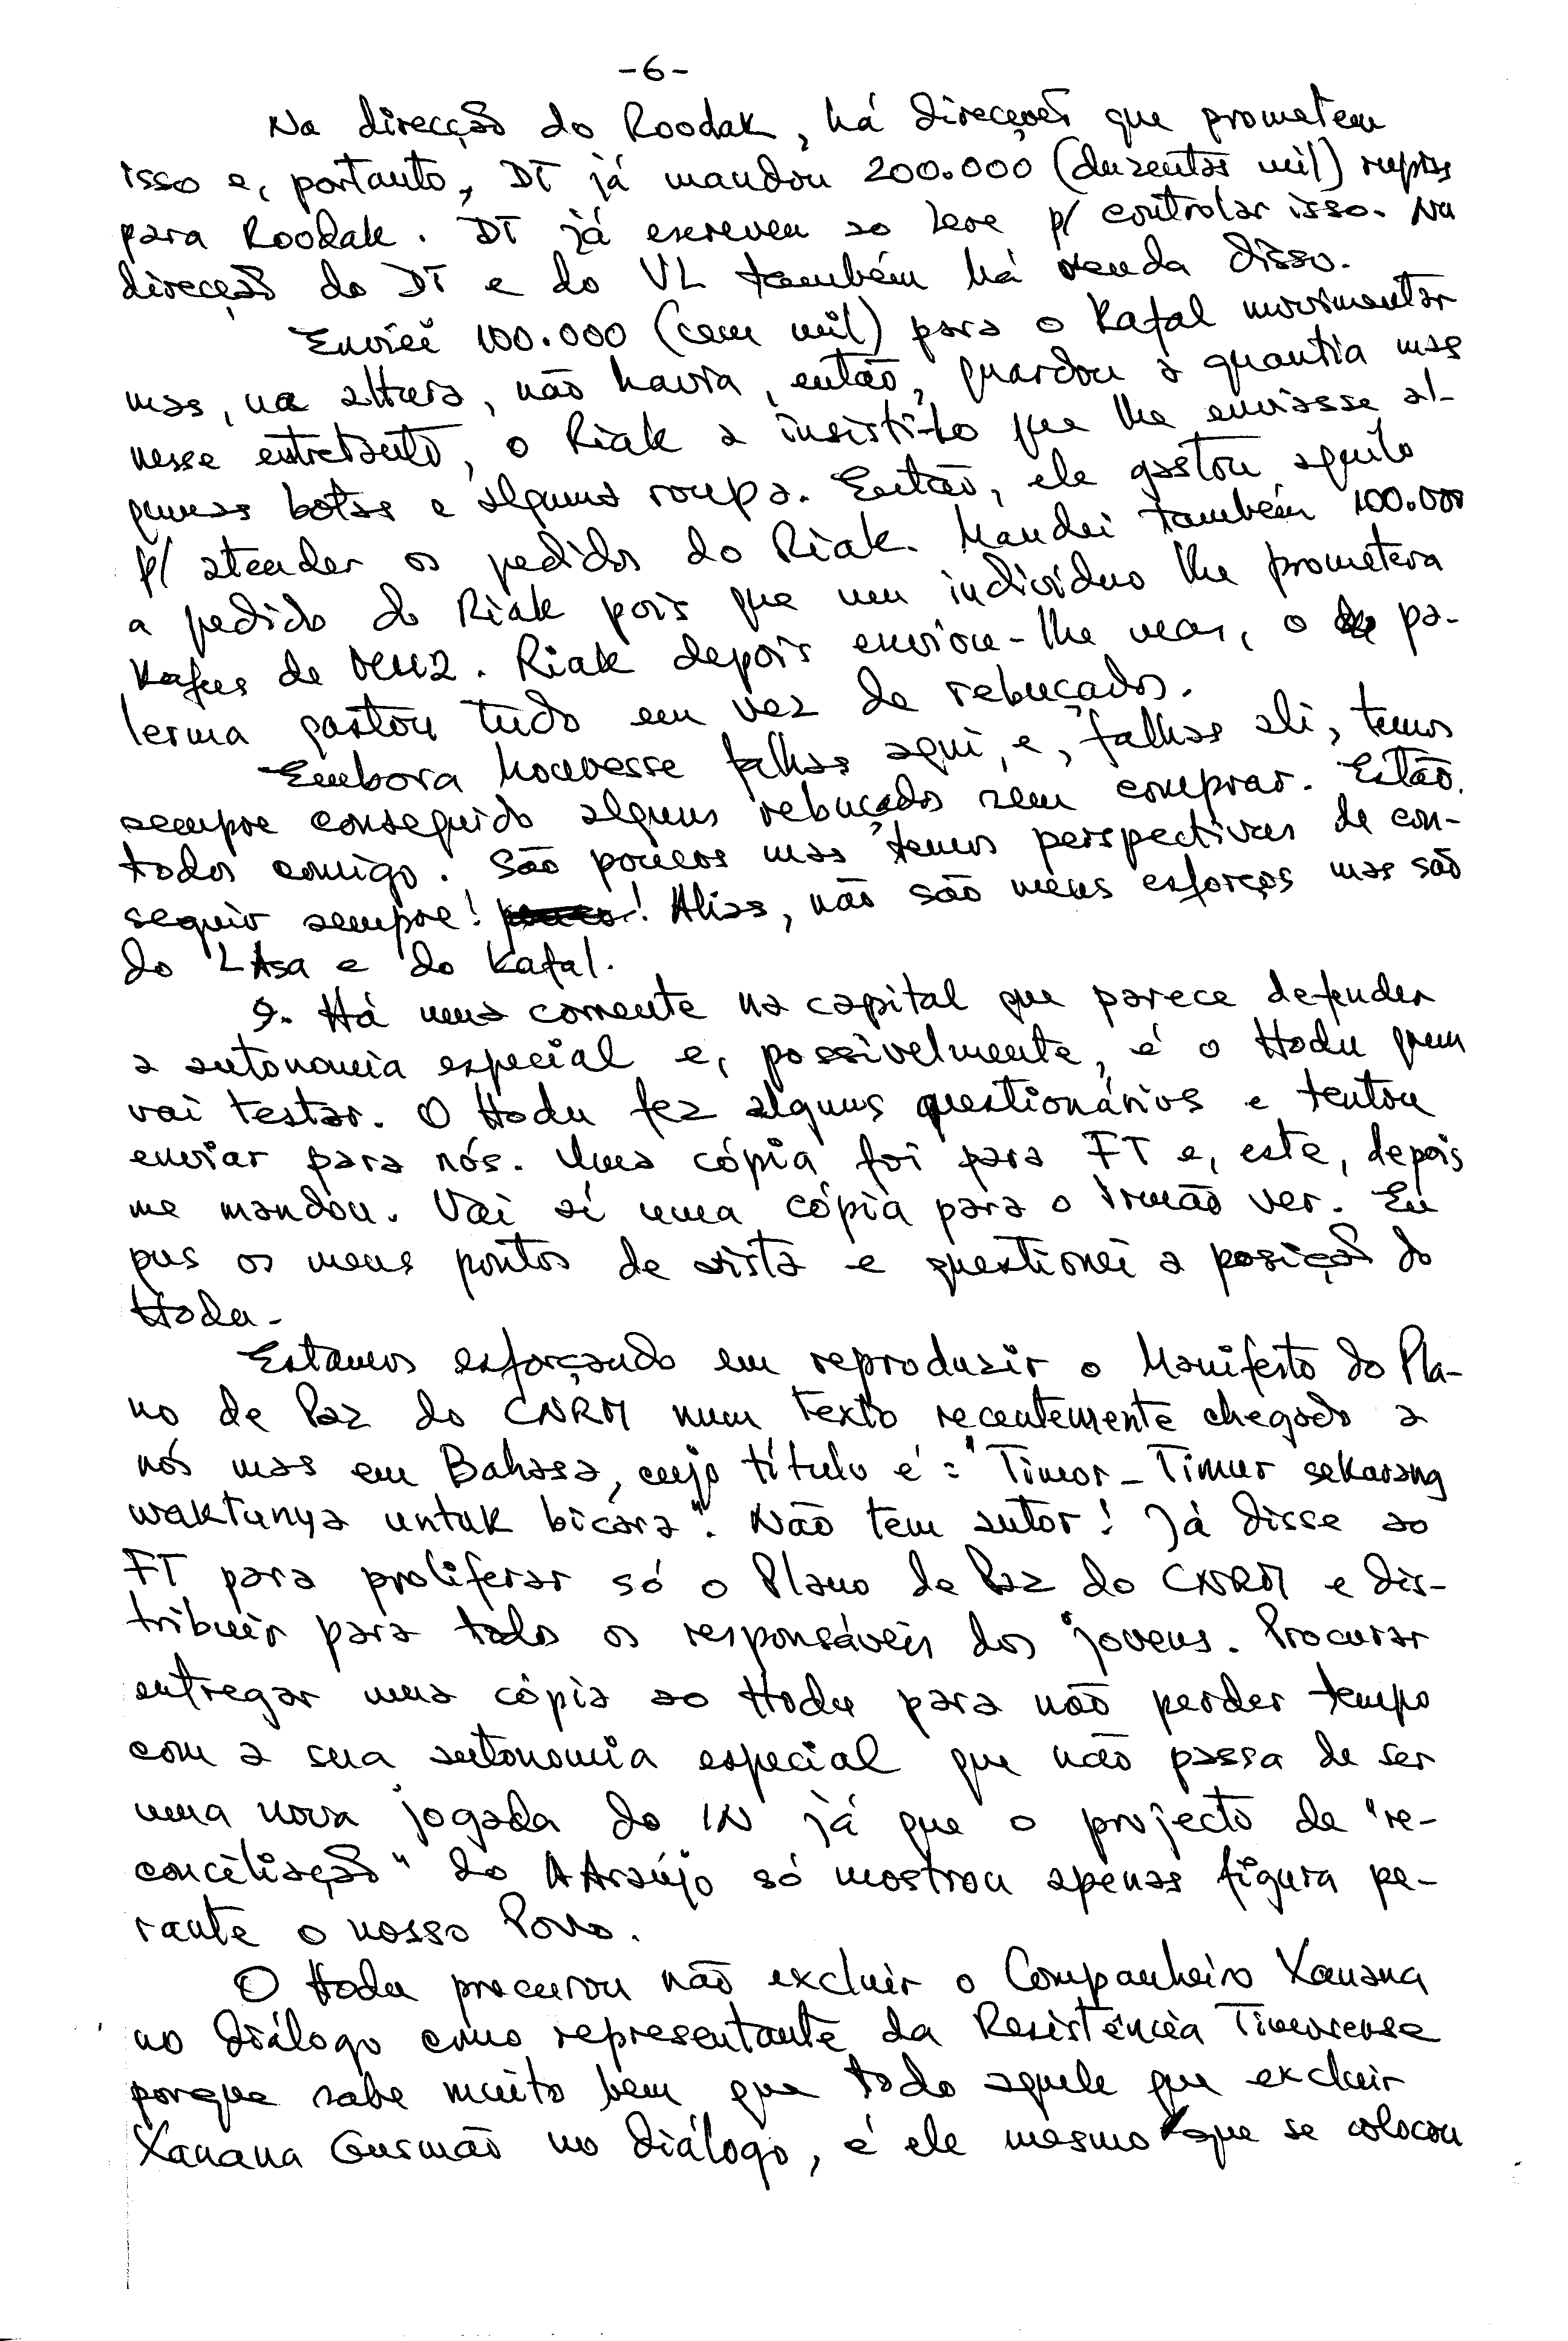 -6-
Na direcção do Roodak, há direcções que prometem
isso e, portanto, DT já mandou 200.000 (duzentas mil) rupias
para Roodak. DT já escreveu ao Lere p/ controlar isso. Na
direcção do DT e do VL também há venda disso.
Enviei 100.000 (cem mil) para o Kafal movimentar
mas, na altura, não havia, então, guardou a quantia mas
nesse entretanto, o Riak a insisti-lo que lhe enviasse al-
gumas botas e alguma roupa. Então, ele gastou aquilo
p/ atender os pedidos do Riak. Mandei também 100.000
a pedido do Riak pois que um indivíduo lhe prometera
de . Riak depois enviou-lhe mas, o pa-
lerma gastou tudo em vez de rebuçados.
Embora houvesse falhas aqui, e, falhas ali, temos
sempre conseguido alguns rebuçados sem comprar. Estão
todos comigo. São poucos mas temos perspectivas de con-
seguir sempre! ! Alias, não são meus esforços mas são
do L Asa e do Kafal.
9. Há uma corrente na capital que parece defender
a autonomia especial e, possivelmente, é o Hodu quem
vai testar. O Hodu fez alguns questionários e tentou
enviar para nós. Uma cópia foi para FT e, este, depois
me mandou. Vai aí uma cópia para o irmão ver. Eu
pus os meus pontos de vista e questionei a posição do
Hodu.
Estamos esforçando em reproduzir o Manifesto do Pla-
no de Paz do CNRM num texto recentemente chegado a
nós mas em Bahasa, cujo título é: "Timor-Timur sekarang
waktunya untuk bicara". Não tem autor! Já disse ao
FT para proliferar só o Plano de Paz do CNRM e dis-
tribuir para todos os responsáveis dos jovens. Procurar
entregar uma cópia ao Hodu para não perder tempo
com a sua autonomia especial que não passa de ser
uma nova jogada do IN já que o projecto de "re-
conciliação" do AAraújo só mostrou apenas figura pe-
rante o nosso Povo.
O Hodu procurou não excluir o Companheiro Xanana
no diálogo como representante da Resistência Timorense
porque sabe muito bem que todo aquele que excluir
Xanana Gusmão no diálogo, é ele mesmo que se colocou